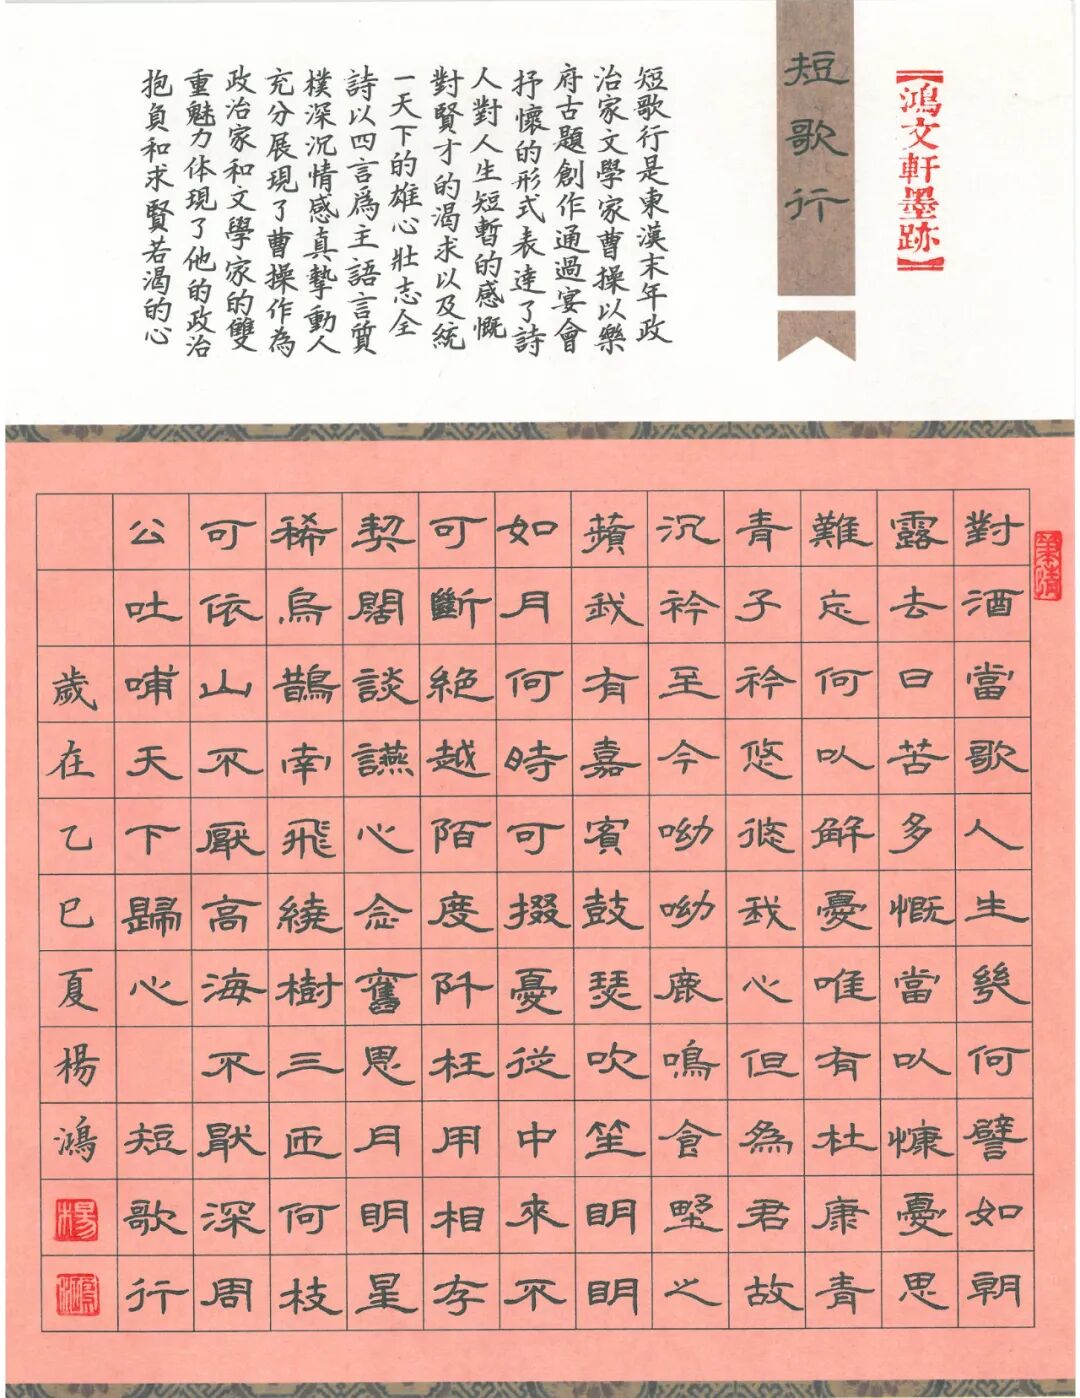 【鴻文軒墨跡】
短歌行
短歌行是東漢末年政
治家文學家曹操以樂
府古題創作通過宴會
抒懷的形式表達了詩
人對人生短暫的感慨
對賢才的渴求以及統
一天下的雄心壯志全
詩以四言爲主語言質
樸深沉情感真摯動人
充分展現了曹操作為
政治家和文學家的雙
重魅力体現了他的政治
抱負和求賢若渴的心
對酒當歌人生幾何譬如朝
露去日苦多慨當以慷憂思
難忘何以解憂唯有杜康青
青子衿悠悠我心但為君故
沉衿至今呦呦鹿鳴食野之
蘋我有嘉賓鼓瑟吹笙明明
如月何時可掇憂從中來不
可斷絕越陌度阡枉用相存
契闊談讌心念舊恩月明星
稀烏鵲南飛繞樹三匝何枝
可依山不厭高海不厭深周
公吐哺天下歸心 短歌行
歲在乙巳夏楊鴻
楊
鴻